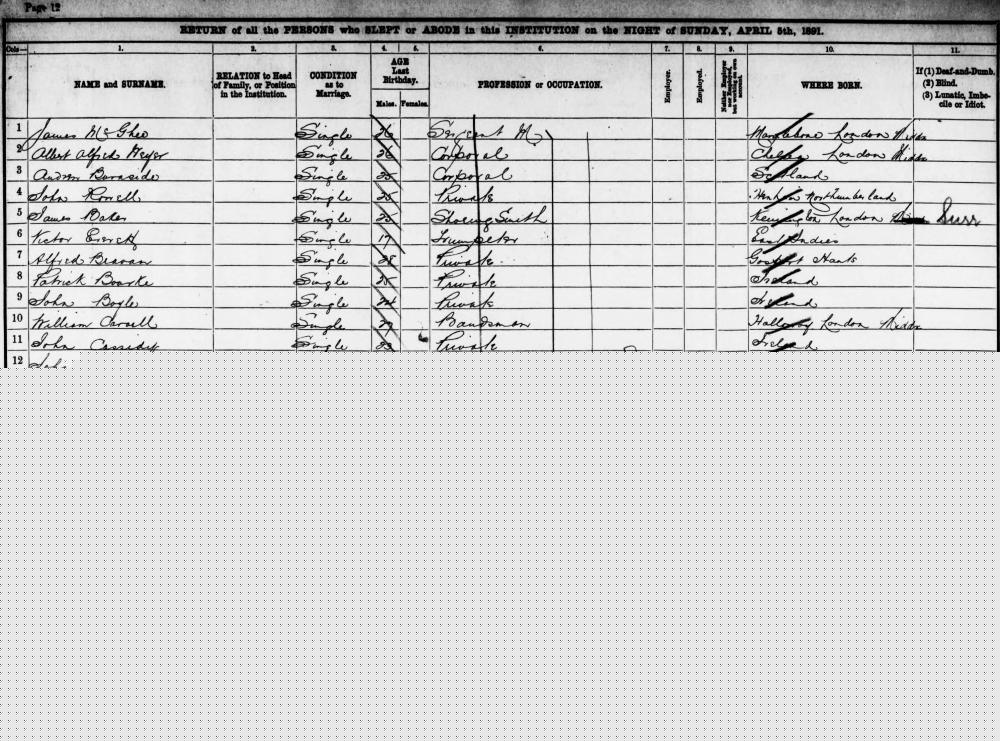 Page 12
RETURN of all the PERSONS who SLEPT or ABODE in this INSTITUTION on the NIGHT of SUNDAY, APRIL 5th, 1891.
Cols— 1. 2. 3. 4. 5. 6. 7. 8. 9. 10. 11.
NAME and SURNAME. RELATION to Head of Family, or Position in the Institution. CONDITION as to Marriage. AGE Last Birthday. Males. Females. PROFESSION or OCCUPATION. Employer. Employed. Neither Employer nor Employed, but working on own account. WHERE BORN. If (1) Deaf-and-Dumb. (2) Blind. (3) Lunatic, Imbecile or Idiot.
1 James McGhee Single 36 Sergeant Marylebone London Middx
2 Albert Alfred Single 26 Corporal Chelsea London Middx
3 Andrew Burnside Single 25 Corporal Scotland
4 John Single 25 Private Northumberland
5 James Baker Single 25 Shoeing Smith Kennington London Surr
6 Victor Everett Single 17 Trumpeter East Indies
7 Alfred Beavan Single 28 Private Gosport Hants
8 Patrick Bourke Single 25 Private Ireland
9 John Boyle Single 24 Private Ireland
10 William Single Bandsman London Middx
11 John Cassidy Single 23 Private Ireland
12 John